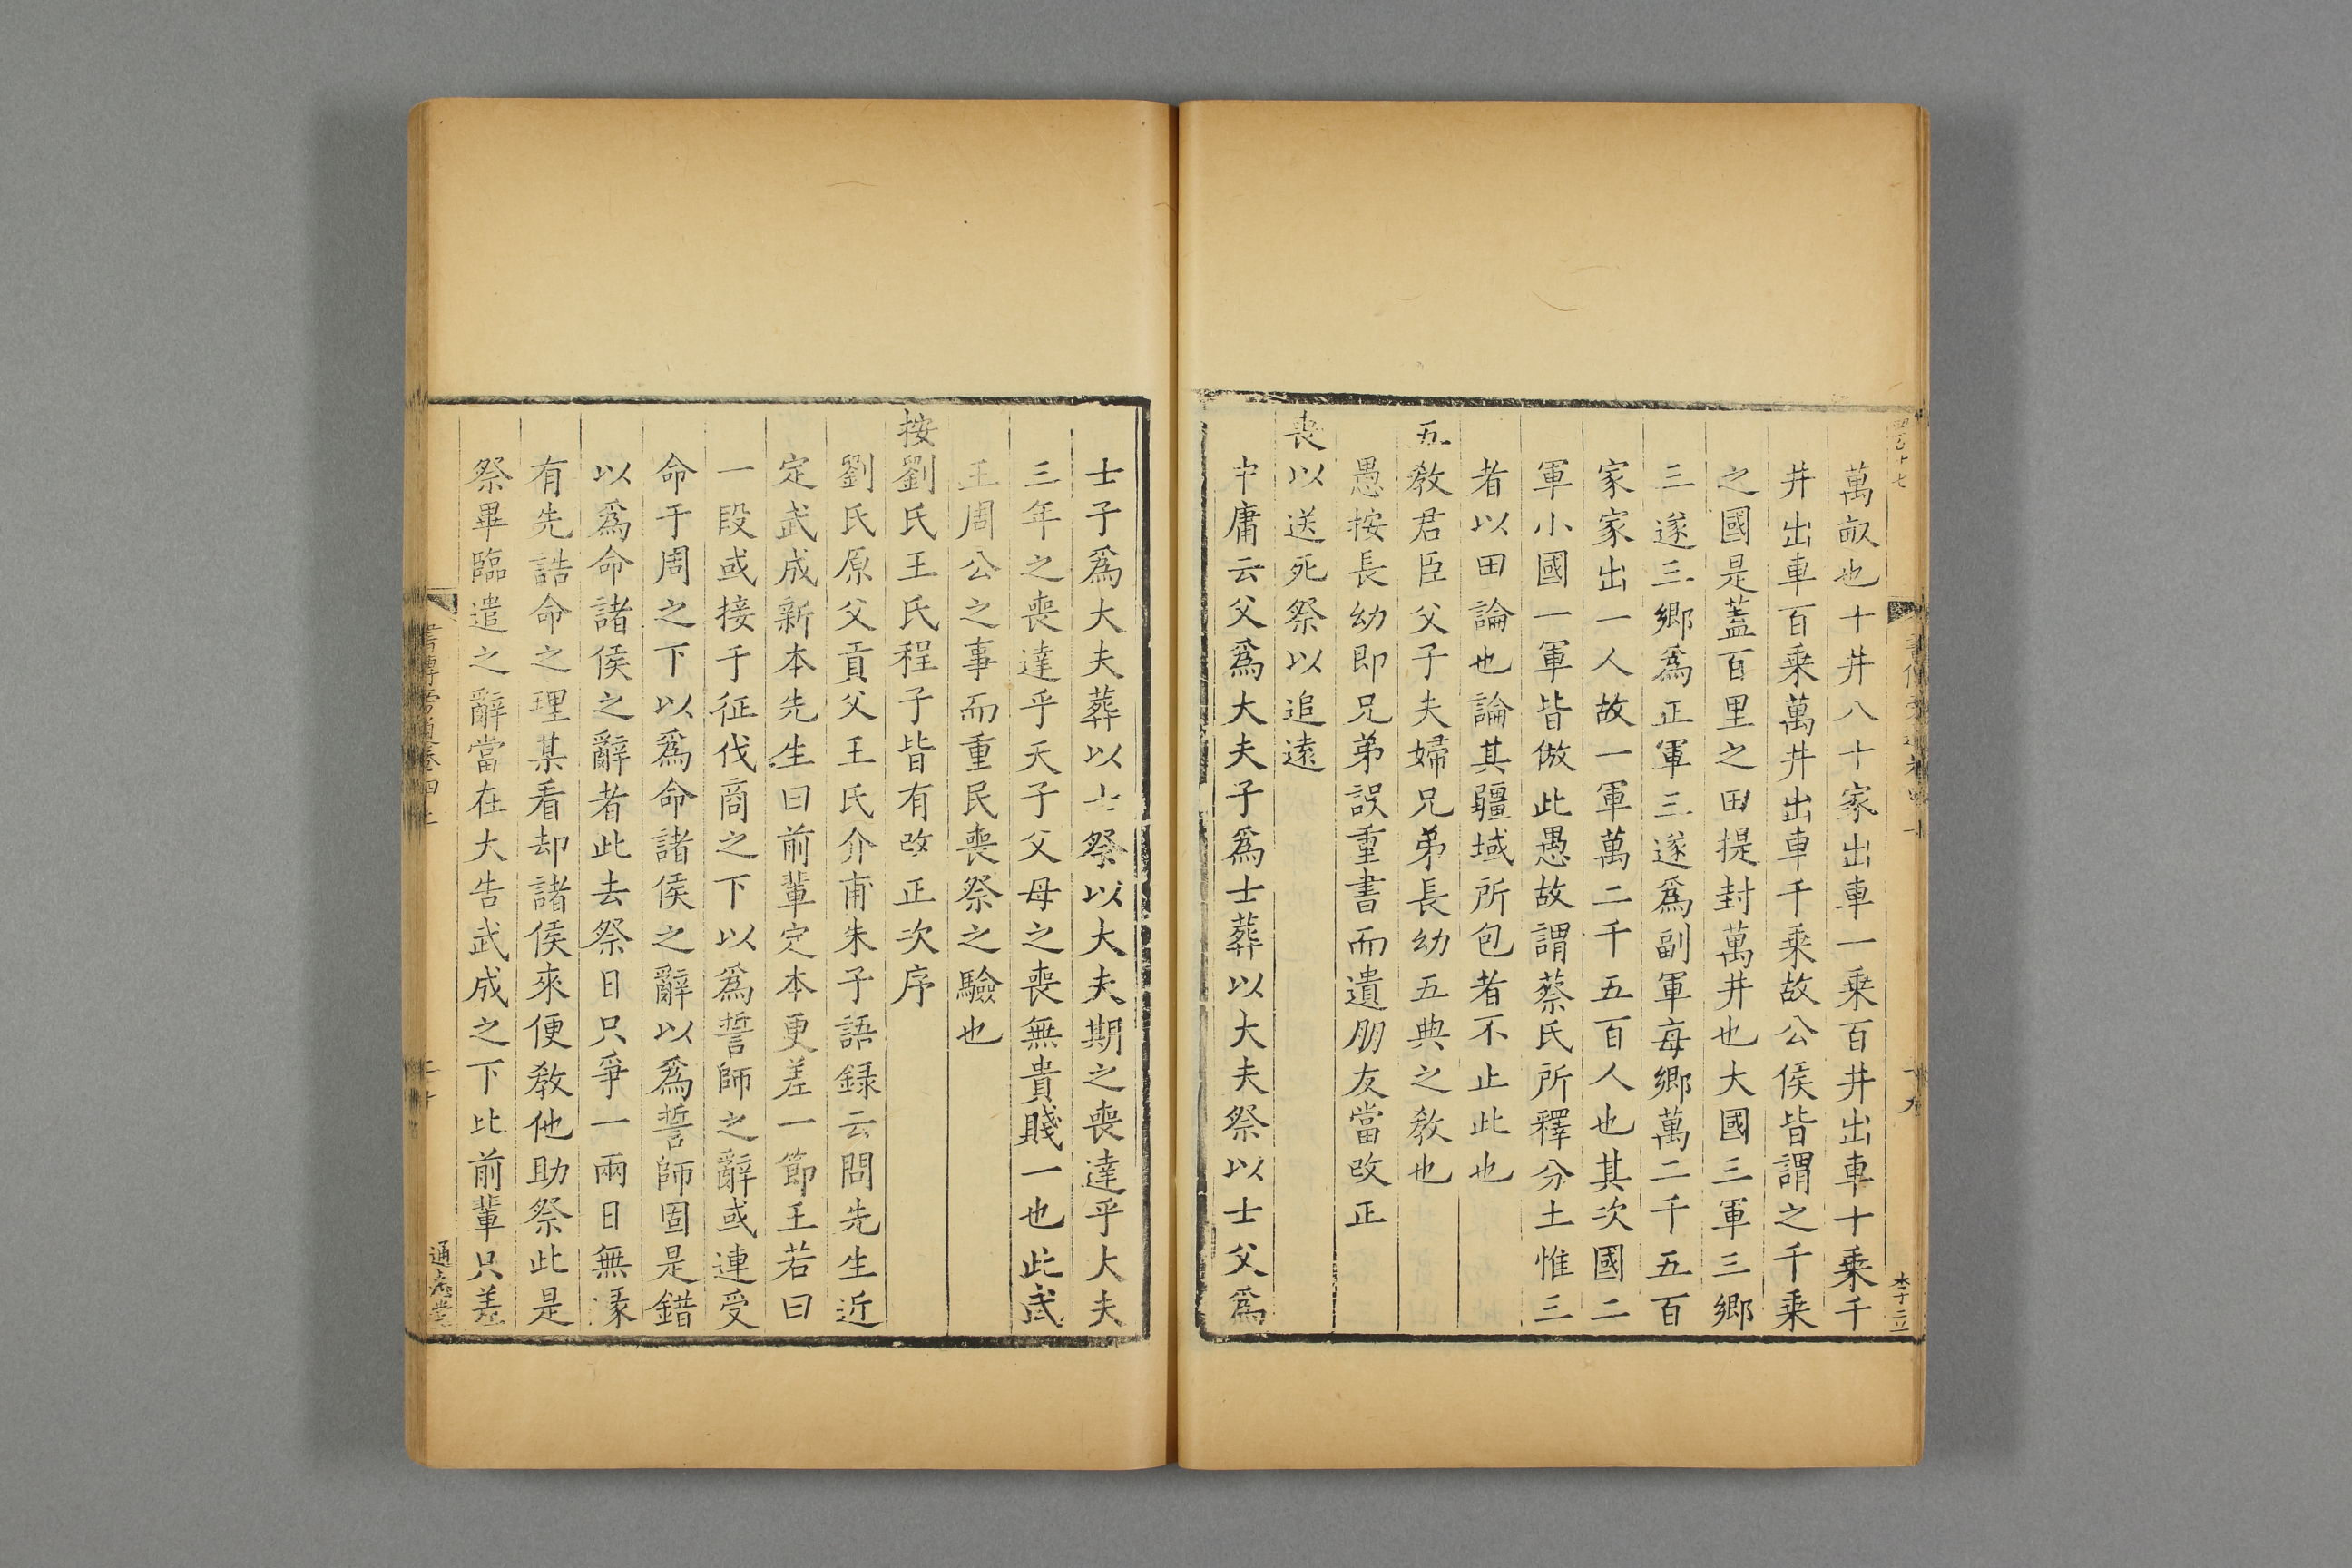 萬畝也十井八十家出車一乘百井出車十乘千
井出車百乘萬井出車千乘故公侯皆謂之千乘
之國是蓋百里之田提封萬井也大國三軍三鄉
三遂三鄉爲正軍三遂爲副軍每鄉萬二千五百
家家出一人故一軍萬二千五百人也其次國二
軍小國一軍皆倣此愚故謂蔡氏所釋分土惟三
者以田論也論其疆域所包者不止此也
五敎君臣父子夫婦兄弟長幼五典之敎也
愚按長幼即兄弟誤重書而遺朋友當改正
喪以送死祭以追遠
中庸云父爲大夫子爲士葬以大夫祭以士父爲
士子爲大夫葬以士祭以大夫期之喪達乎大夫
三年之喪達乎天子父母之喪無貴賤一也此武
王周公之事而重民喪祭之驗也
按劉氏王氏程子皆有改正次序
劉氏原父貢父王氏介甫朱子語録云問先生近
定武成新本先生曰前輩定本更差一節王若曰
一段或接于征伐商之下以爲誓師之辭或連受
命于周之下以爲命諸侯之辭以爲誓師固是錯
以爲命諸侯之辭者此去祭日只爭一兩日無緣
有先誥命之理某看却諸侯來便敎他助祭此是
祭畢臨遣之辭當在大告武成之下比前輩只差
書傳旁通卷四上
二十
通志堂